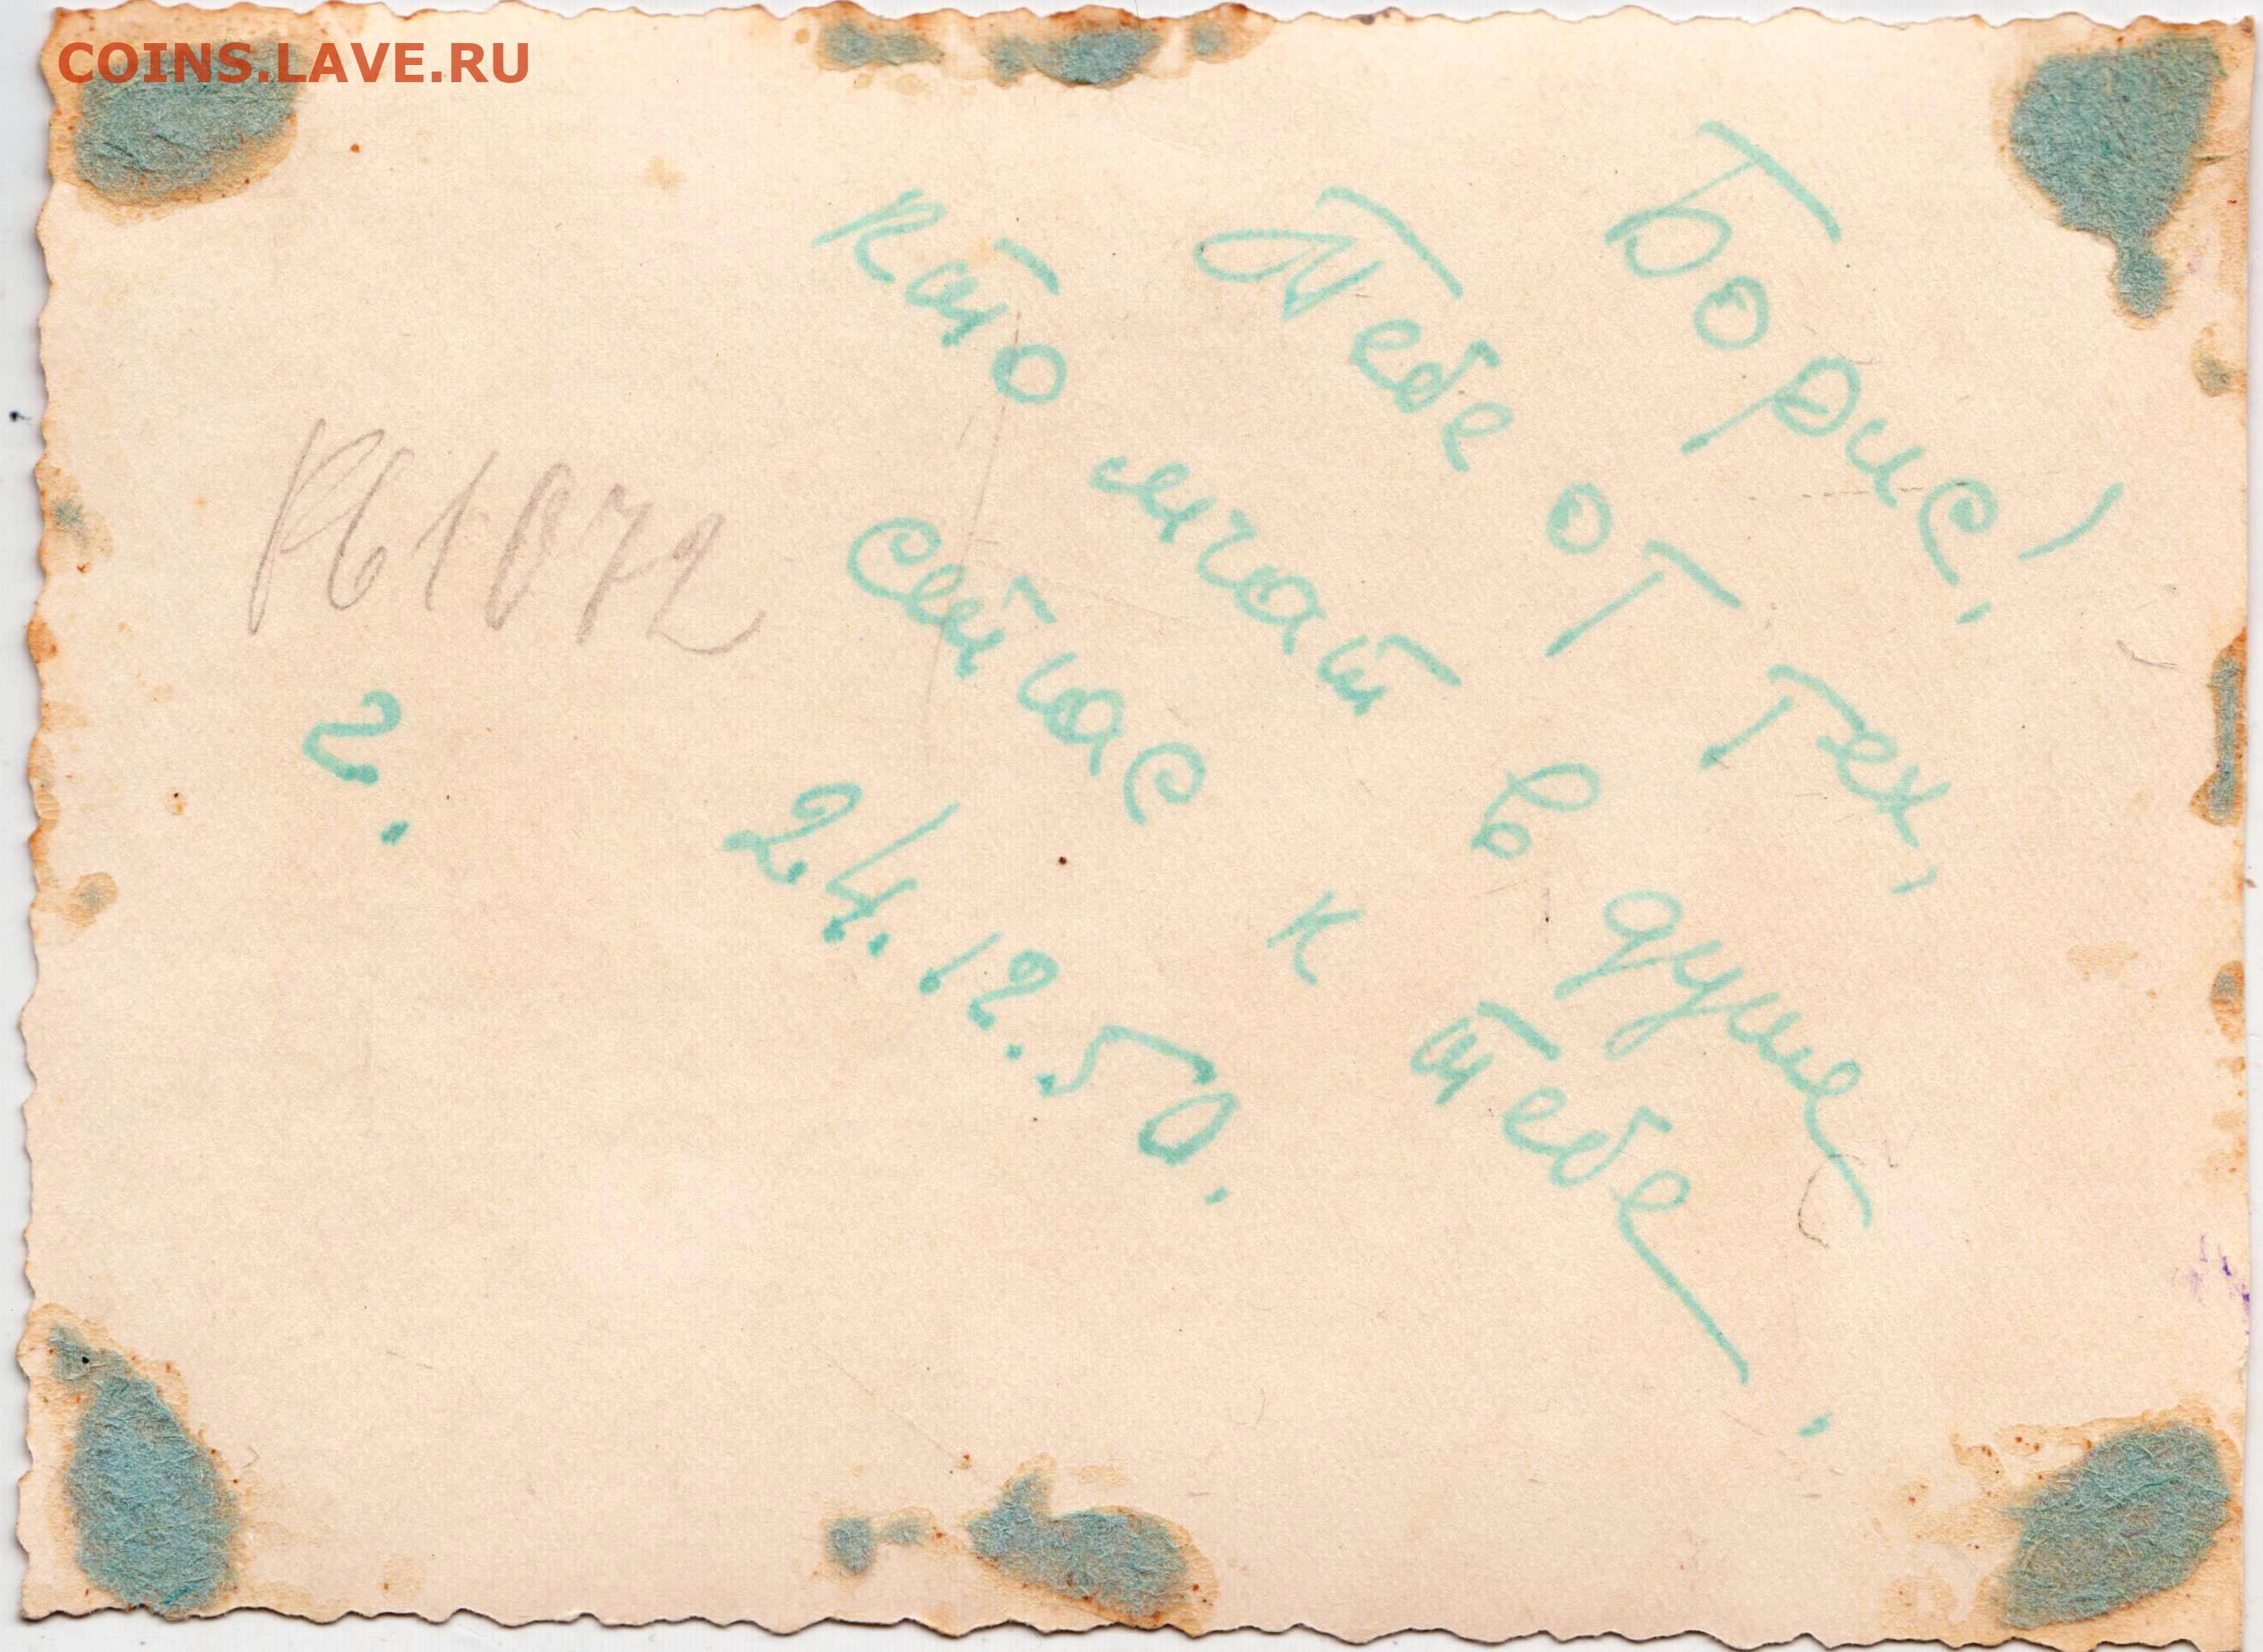 COINS.LAVE.RU
Борис!
Тебе от Тех,
кто мчат в душе
сейчас к тебе.
24.12.50.
г.